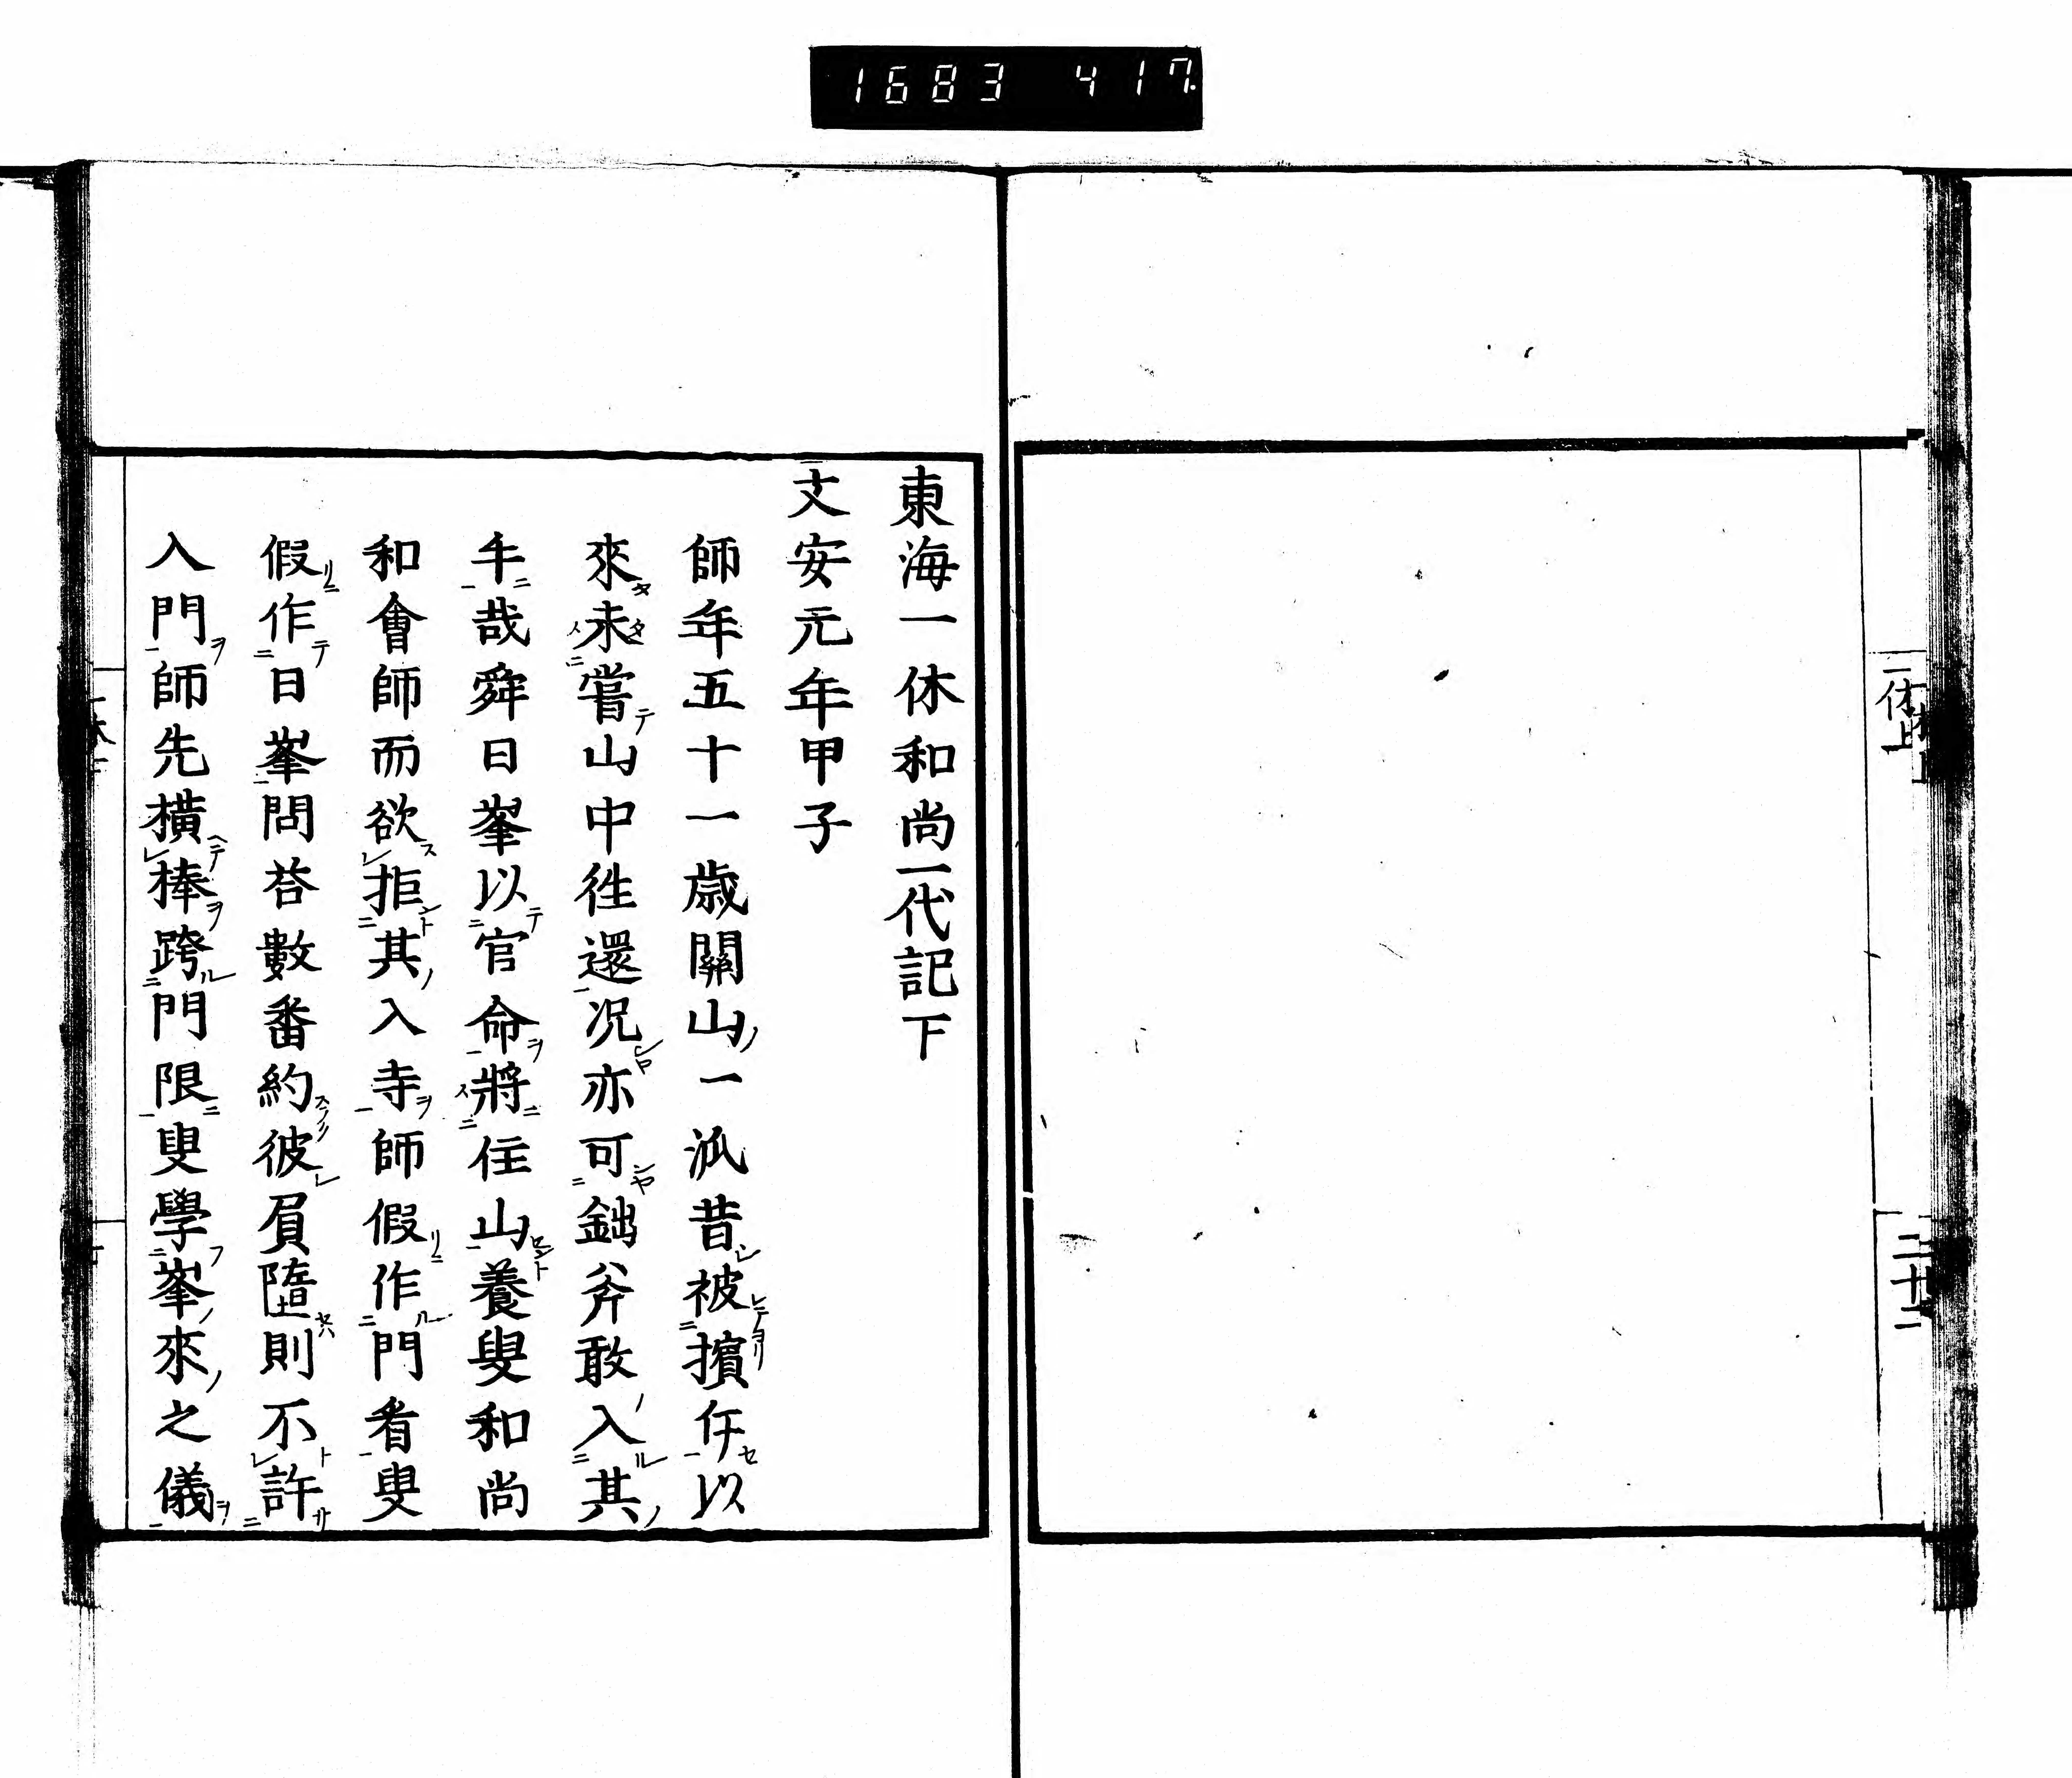 1683 417.
一休上
二十二
東海一休和尚一代記下
文安元年甲子
師年五十一歳關山一派昔被擯斥以
來未嘗山中徃還况亦可鈯斧敢入其
手哉舜日峯以官命將住山養叟和尚
和會師而欲拒其入寺師假作門看叟
假作日峯問荅數番約彼屓墮則不許
入門師先橫棒跨門限叟學峯來之儀